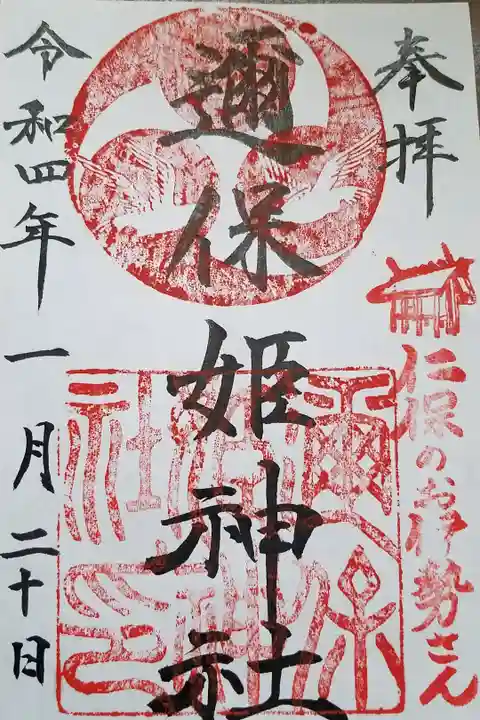 奉拝
仁保のお伊勢さん
邇保姫神社
令和四年一月二十日